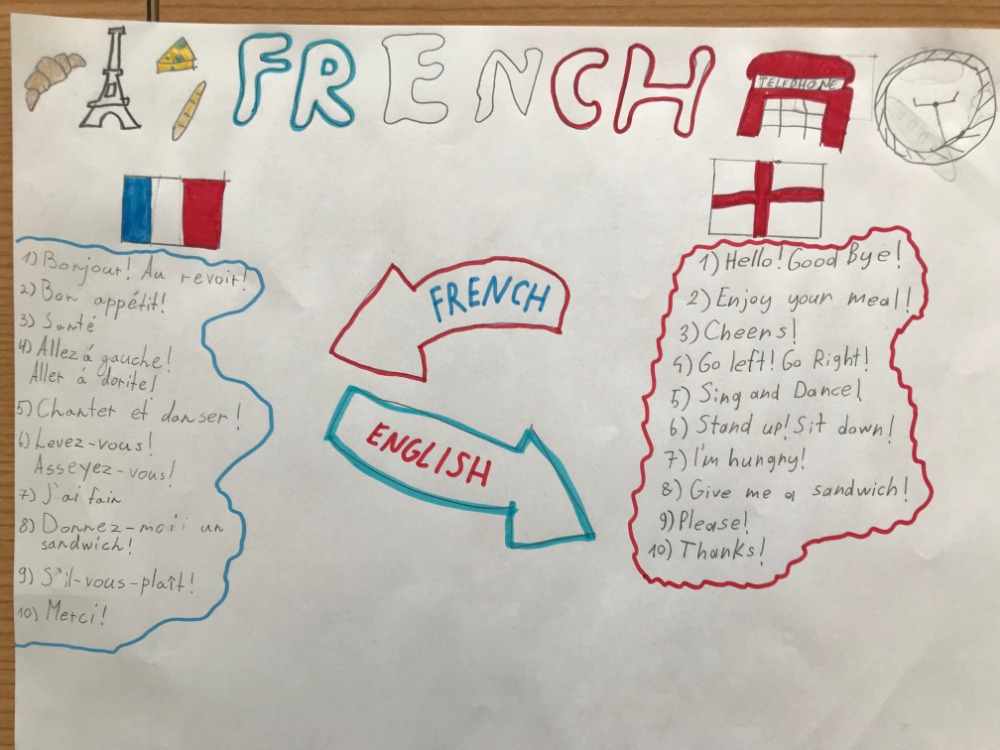 FRENCH
TELEPHONE
1) Bonjour! Au revoir!
2) Bon appétit!
3) Santé
4) Allez á gauche!
Aller á dorite!
5) Chanter et danser!
6) Levez-vous!
Asseyez-vous!
7) J'ai fain
8) Donnez-moii un
sandwich!
9) S'il-vous-plaît!
10) Merci!
FRENCH
ENGLISH
1) Hello! Good Bye!
2) Enjoy your meal!
3) Cheers!
4) Go left! Go Right!
5) Sing and Dance!
6) Stand up! Sit down!
7) I'm hungry!
8) Give me a sandwich!
9) Please!
10) Thanks!